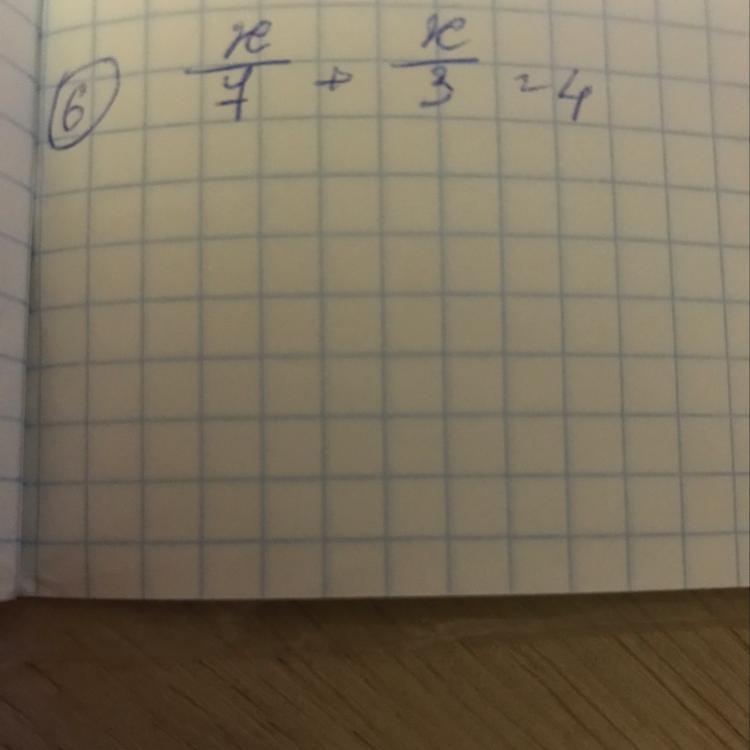 ⑥ x/7 + x/3 = 4